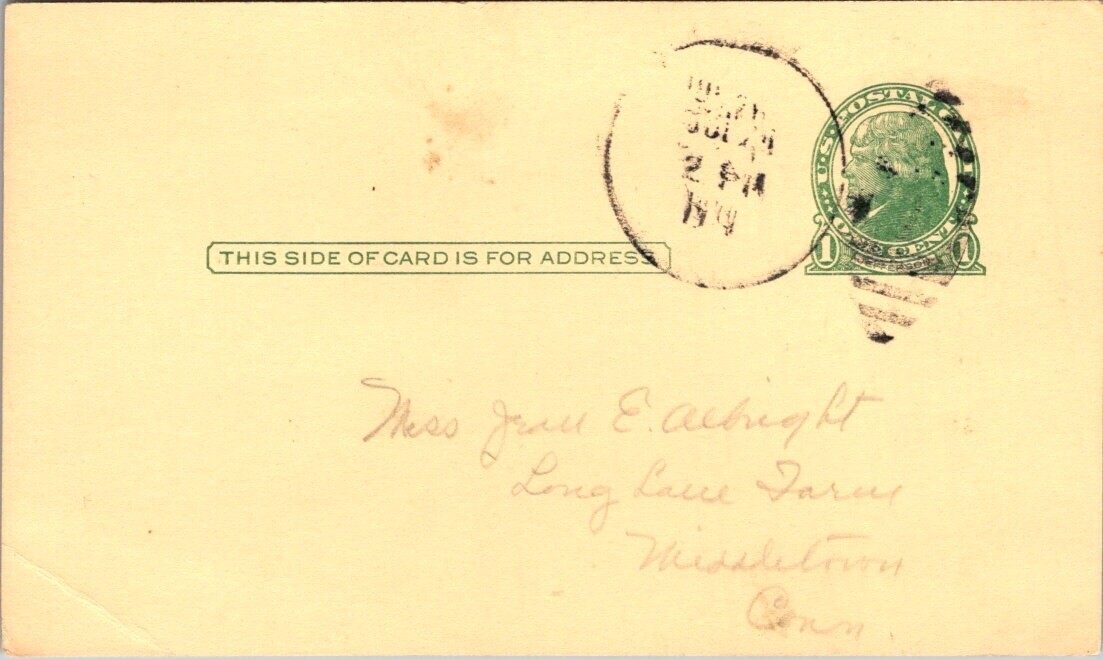 U.S. POSTAL CARD
ONE CENT
1 1
JEFFERSON
THIS SIDE OF CARD IS FOR ADDRESS
JUL
2 PM
Miss Jean E. Albright
Long Lane Farm
Middletown
Conn.